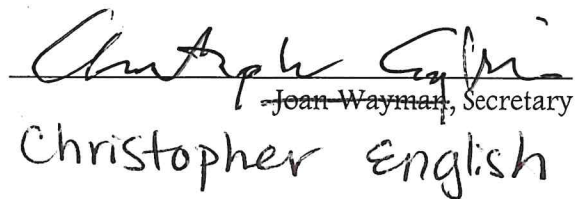 Christopher English
Joan Wayman, Secretary
Christopher English